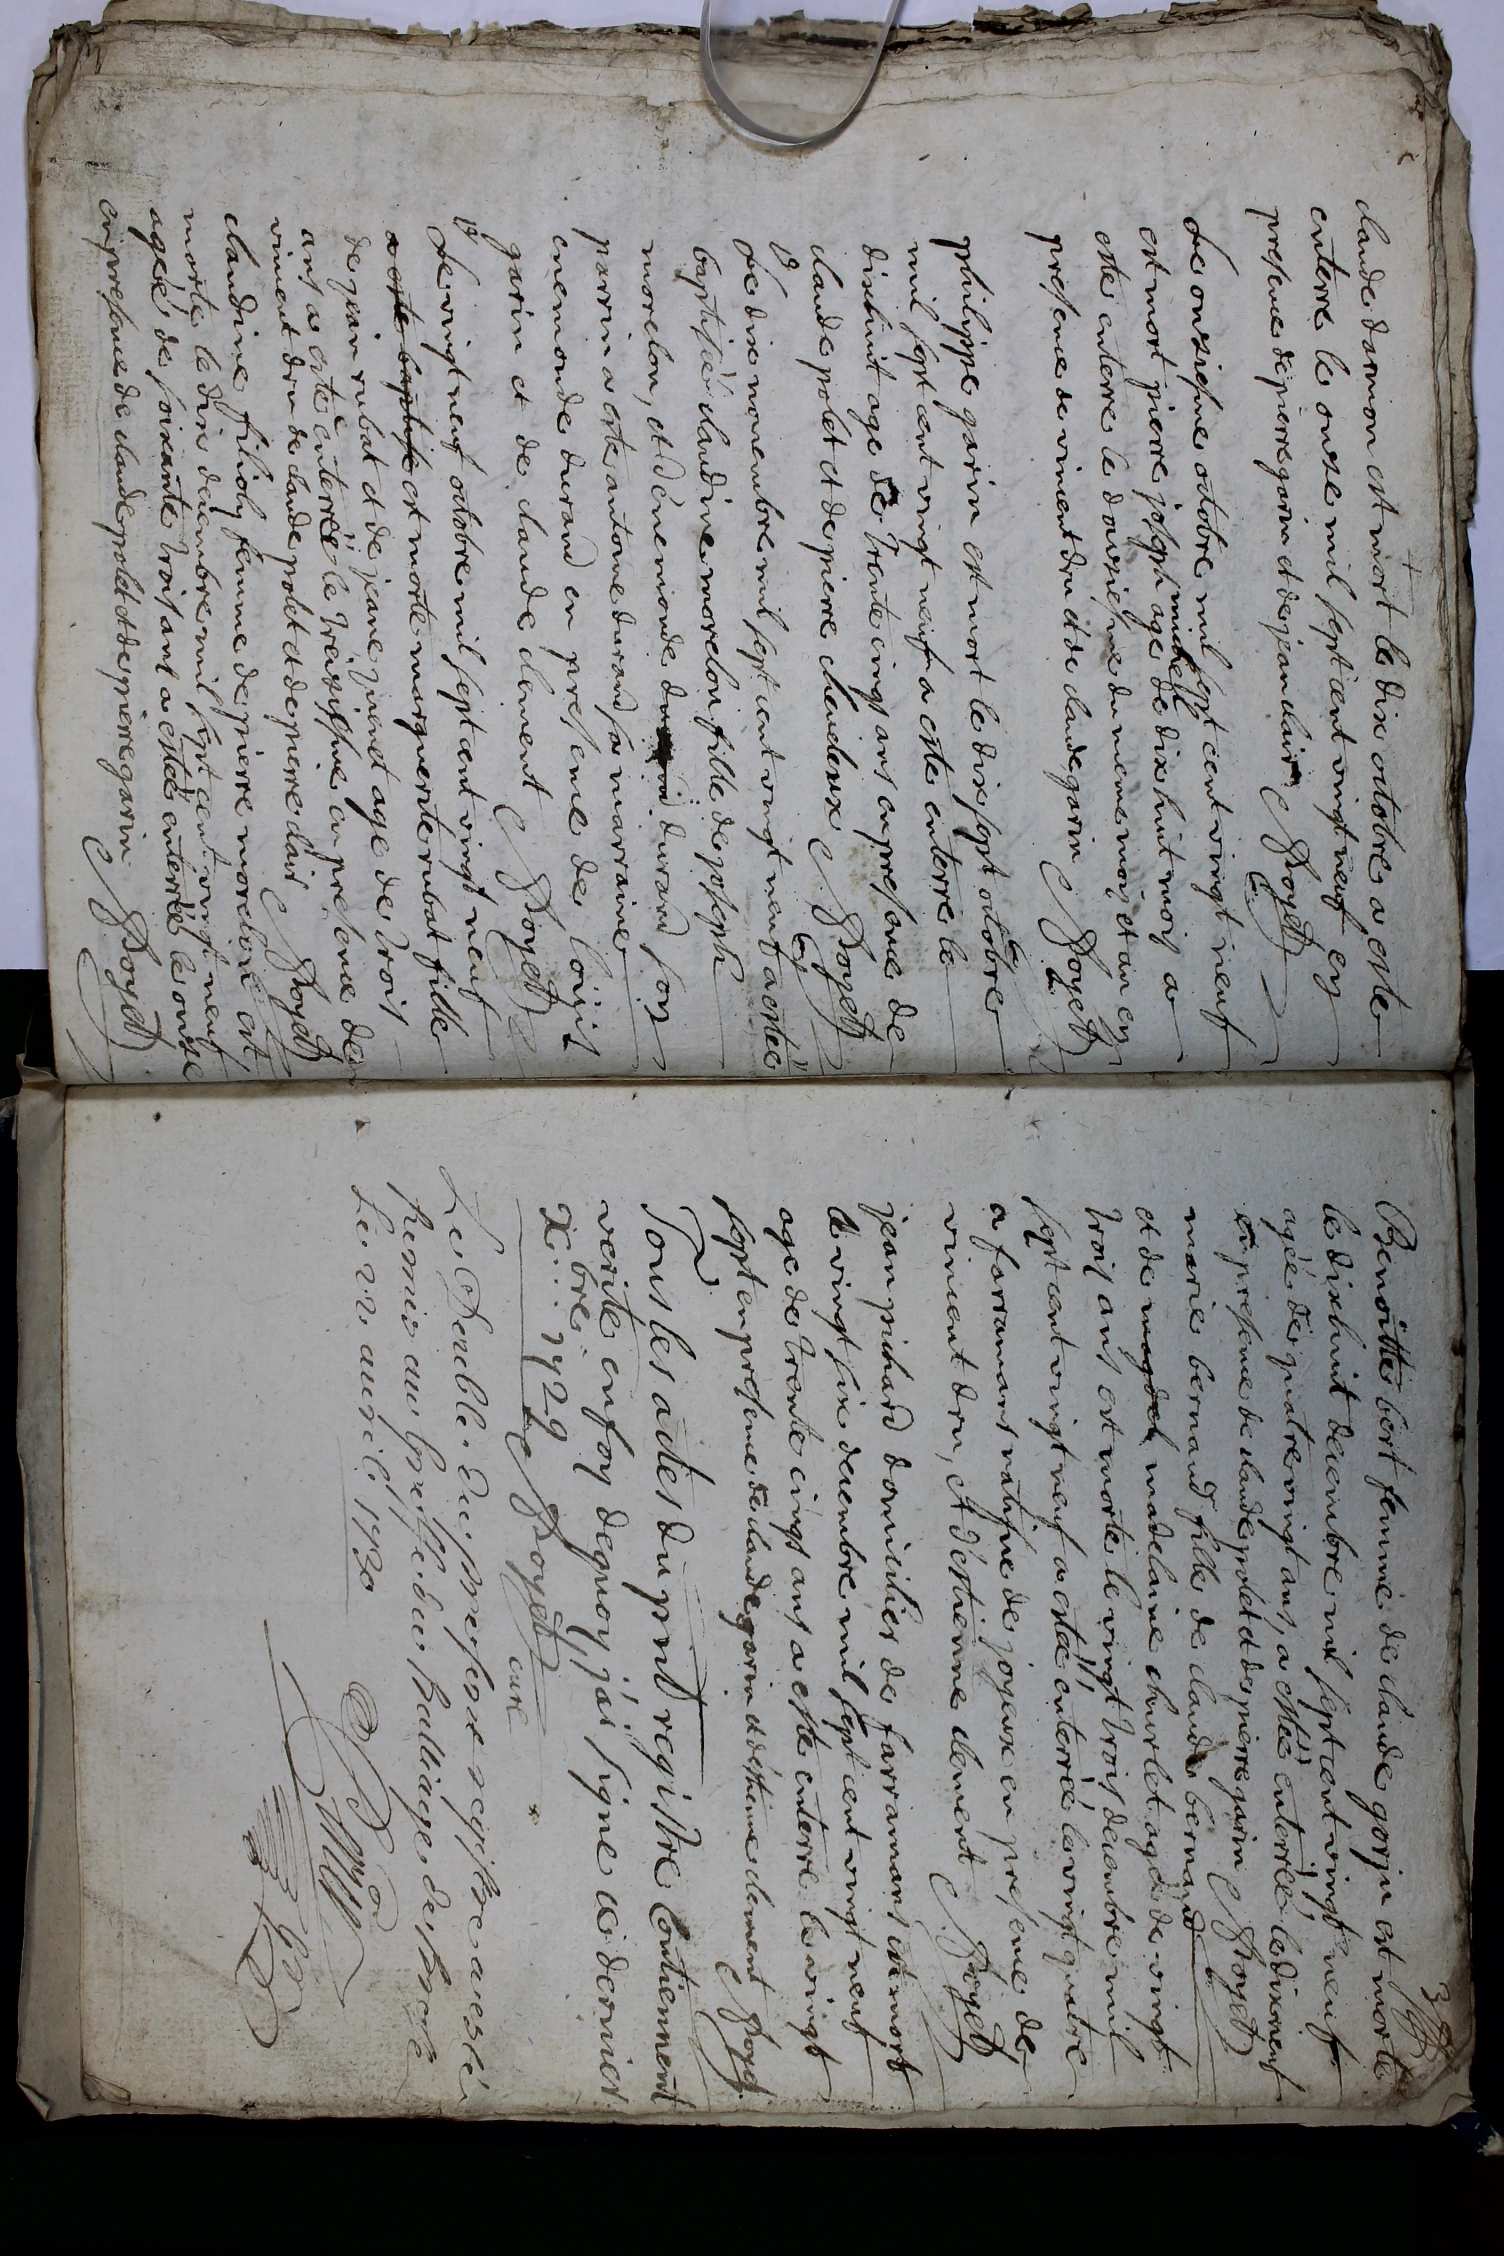 claude damon est mort le dix octobre a este
enterre le onze mil sept cent vingt neuf en
presence de pierre garin et de jean clair Doyet
cu.
Le onzieme octobre mil sept cent vingt neuf
est mort pierre joseph michel age de dix huit mois a
este enterre le douzieme du meme mois et an en
presence de vincent dru et de claude garin Doyet
cu
philippe garin est mort le dix sept octobre
mil sept cent vingt neuf a este enterre le
dixhuit age de trente cinq ans en presence de
claude polet et de pierre Doyet
cu
B
Le dix nouembre mil sept cent vingt neuf a estée
baptisée claudine morelon fille de joseph
morelon, et d'enemonde durand son
parrin a este antoine durand sa marraine
enemonde durand en presence de loüis
garin et de claude clement Doyet
Le vingt neuf octobre mil sept cent vingt neuf
a este baptise est morte marguerite rubat fille
de jean rubat et de jeane age de trois
ans a esté enterrée le treizieme en presence de
vincent dru de claude polet et de pierre clair Doyet
claudine filioly femme de pierre morelon est
morte le dix decembre mil sept cent vingt neuf
agée de soixante trois ans a estée enterrée le onze
en presence de claude polet et de pierre garin Doyet
3
Benoitte bert femme de claude gorju est morte
le dixhuit decembre mil sept cent vingt neuf
agée de quatre vingt ans, a estée enterrée le dixneuf
en presence de claude polet et de pierre garin Doyet
marie bernard fille de claude bernard
et de magdel madelaine churlet agée de vingt
trois ans est morte le vingt trois decembre mil
sept cent vingt neuf a estée enterrée le vingt quatre
a farramans natifve de joyeux en presence de
vincent dru, et d'estienne clement Doyet
jean pichard domicilier de farramans est mort
le vingt six decembre mil sept cent vingt neuf
age de trente cinq ans a este enterre le vingt
sept en presence de claude garin et d'estienne clement Doyet
Tous les actes du pnt registre contiennent
verité en foy de quoy j'ai signe ce dernier
xbre 1729 Doyet curé
Le Double du present registre a esté
remis au greffe du bailliage de
Le 22 auril 1730